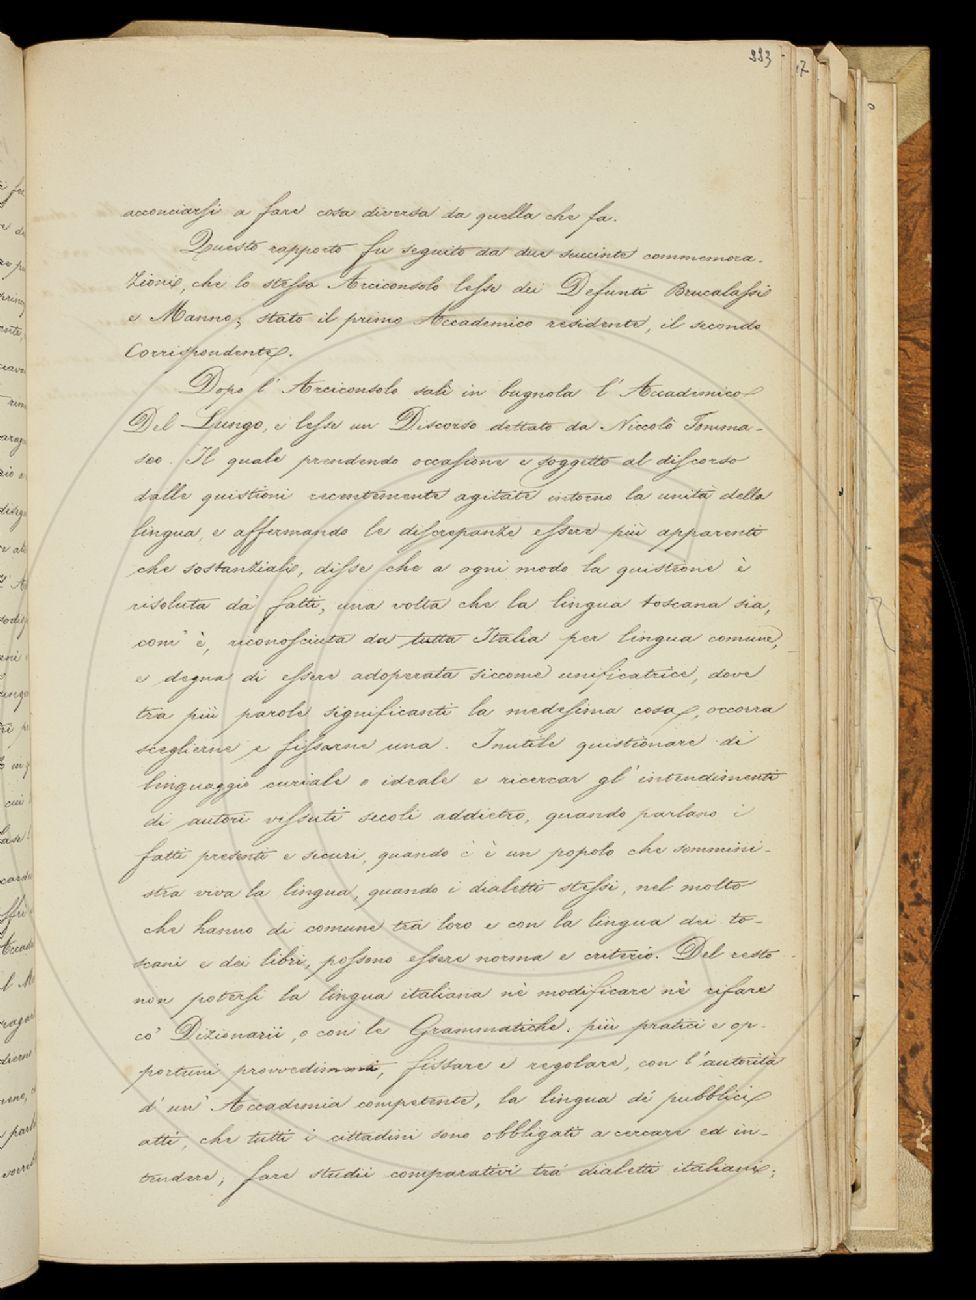 223
acconciarsi a fare cosa diversa da quella che fa.
Questo rapporto fu seguito da due succinte commemora-
zioni, che lo stesso Arciconsolo lesse dei Defunti Brucalassi
e Manno; stato il primo Accademico residente, il secondo
Corrispondente.
Dopo l' Arciconsolo salì in bugnola l' Accademico
Del Lungo, e lesse un Discorso dettato da Niccolò Tomma-
seo. Il quale prendendo occasione e soggetto al discorso
dalle quistioni recentemente agitate intorno la unità della
lingua, e affermando le discrepanze essere più apparenti
che sostanziali, disse che a ogni modo la quistione è
risoluta da' fatti, una volta che la lingua toscana sia,
com' è, riconosciuta da tutta Italia per lingua comune,
e degna di essere adoperata siccome unificatrice, dove
tra più parole significanti la medesima cosa, occorra
sceglierne e fissarne una. Inutile quistionare di
linguaggio curiale o ideale e ricercar gl' intendimenti
di autori vessuti secoli addietro, quando parlano i
fatti presenti e securi, quando c' è un popolo che sommini-
stra viva la lingua, quando i dialetti stessi, nel molto
che hanno di comune tra loro e con la lingua dei to-
scani e dei libri, possono essere norma e criterio. Del resto
non potersi la lingua italiana nè modificare nè rifare
co' Dizionarii, o con le Grammatiche: più pratici e op-
portuni provvedimenti, fissare e regolare, con l'autorità
d' un' Accademia competente, la lingua de' pubblici
atti, che tutti i cittadini sono obbligati a cercare ed in-
tendere; fare studii comparativi tra' dialetti italiani;